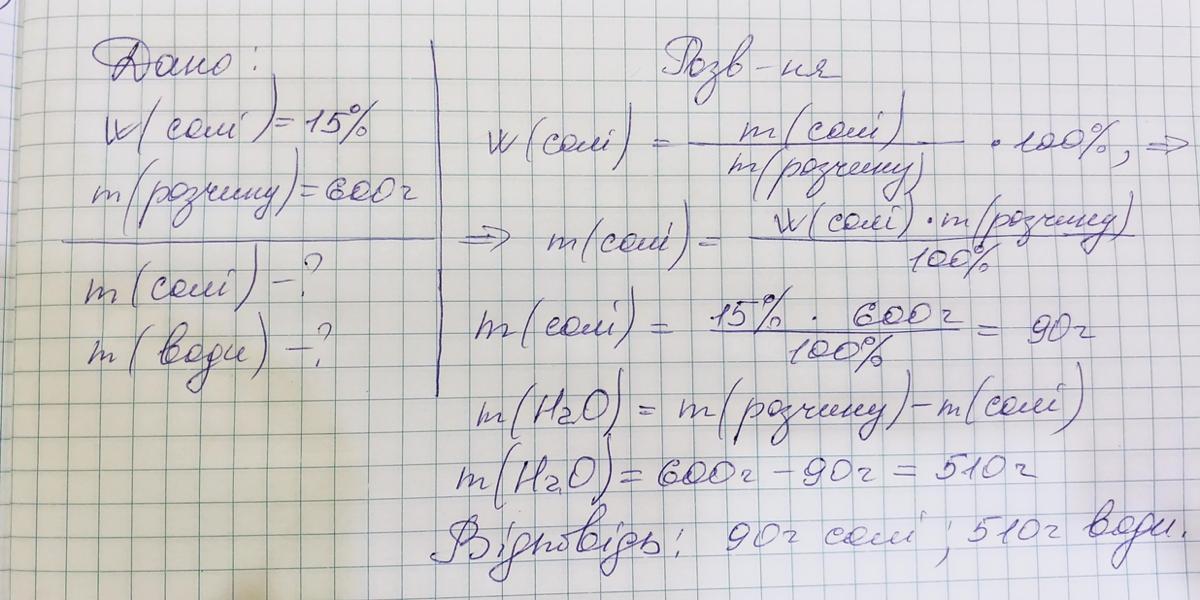 Дано:
w(солі) = 15%
m(розчину) = 600г
m(солі) - ?
m(води) - ?
Розв-ня
w(солі) = m(солі) / m(розчину) · 100%, ⇒
⇒ m(солі) = w(солі) · m(розчину) / 100%
m(солі) = 15% · 600г / 100% = 90г
m(H₂O) = m(розчину) - m(солі)
m(H₂O) = 600г - 90г = 510г
Відповідь: 90г солі; 510г води.